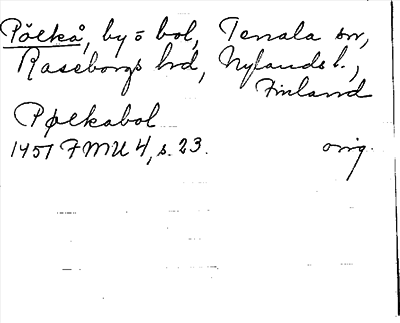 Pölkå, by o bol, Tenala sn,
Raseborgs hd, Nylands l.,
Finland
Pølkabol
1451 FMU 4, s. 23. orig.